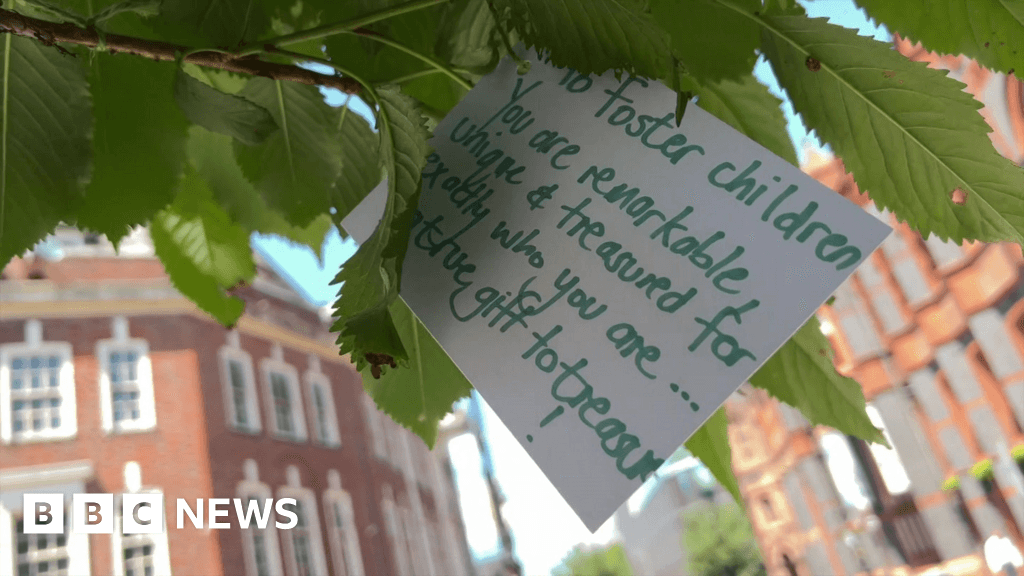 To foster children
You are remarkable,
unique & treasured for
exactly who you are ...
gift to treasure
!
BBC NEWS